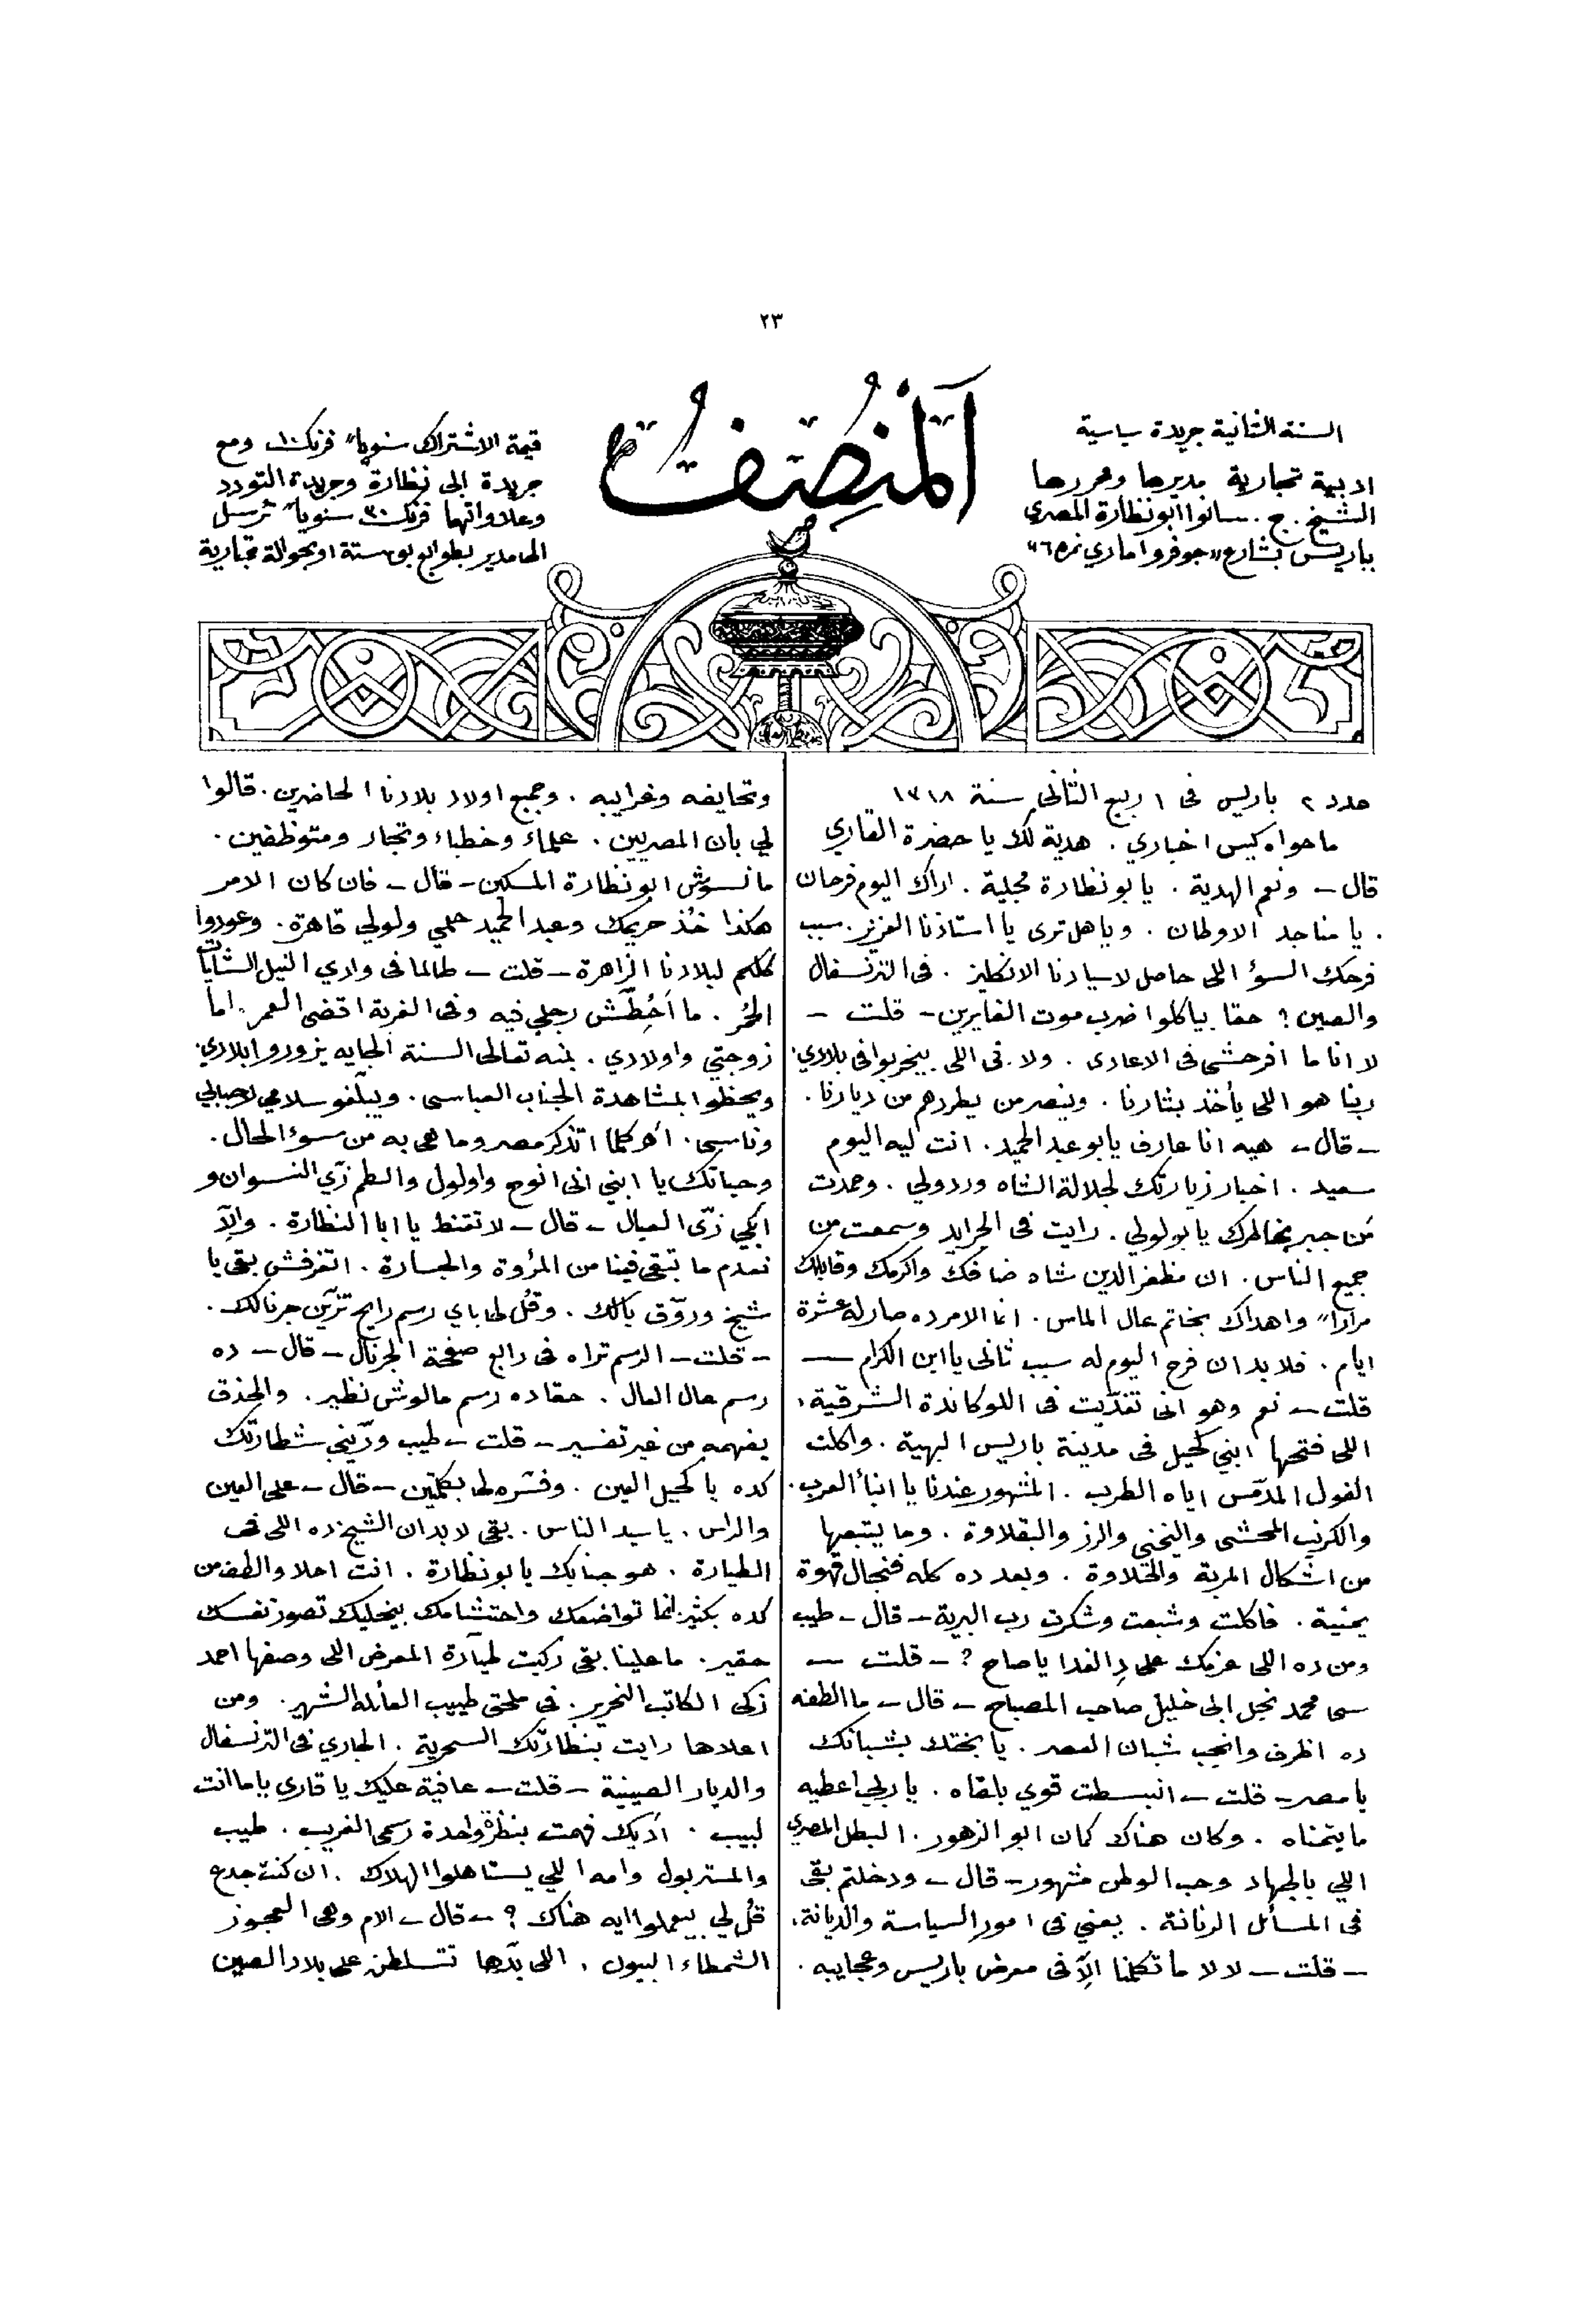 ٢٣
المُنصِف
السنة الثانية جريدة سياسية
ادبية تجارية مديرها ومحررها
الشيخ . ج . سانوا ابو نظارة المصري
بباريس بشارع "جوفروا ماري نمره ٦"
قيمة الاشتراك سنوياً فرنك ١٠ ومع
جريدة ابى نظارة وجريدة التودد
وعلاواتها فرنك ٣٠ سنوياً ترسل
الى مدير بطوابع بوستة او بحوالة تجارية
عدد ٢ باريس فى ١ ربيع الثانى سنة ١٣١٨
ما حواه كيس اخباري . هدية لك يا حضرة القاري
قال – ونعم الهدية . يابو نظارة مجلية . اراك اليوم فرحان
. يا مناجد الاوطان . وياهل ترى يا استاذنا العزيز . سبب
فرحك السؤ اللى حاصل لاسيادنا الانكليز . فى الترنسفال
والصين ؟ حقا بياكلوا ضرب موت الفايرين – قلت –
لا انا ما افرحشى فى الاعادى . ولا فى اللى بيخربوا فى بلادي .
ربنا هو اللى يأخذ بثارنا . وينصر من يطردهم من ديارنا .
– قال – هيه انا عارف يابو عبد الحميد . انت ليه اليوم
سعيد . اخبار زيارتك لجلالة الشاه وردولي . وحمدت
مَن جبر بخاطرك يابو لولي . رايت فى الجرايد وسمعت من
جميع الناس . ان مظفر الدين شاه ضافك واكرمك وقابلك
مراراً واهداك بخاتم عال الماس . انما الامر ده صار له عشرة
ايام . فلا بد ان فرح اليوم له سبب ثانى يا ابن الكرام —
قلت – نعم وهو انى تغدّيت فى اللوكاندة الشرقية .
اللى فتحها ابني كحيل فى مدينة باريس البهية . واكلت
الفول المدمّس اياه الطرب . المشهور عندنا يا ابنأ العرب .
والكرنب المحشى واليخني والرز والبقلاوة . وما يتبعها
من اشكال المربة والحلاوة . وبعد ده كله فنجال قهوة
يمنية . فاكلت وشبعت وشكرت رب البرية – قال – طيب
ومن ده اللى عزمك على دِالغدا يا صاح ؟ – قلت —
سى محمد نجل ابى خليل صاحب المصباح – قال – ما الطفه
ده اظرف وانجب شبان العصر . يا بختك بشبانك
يا مصر – قلت – انبسطت قوي بلقاه . يا ربي اعطيه
ما يتمناه . وكان هناك كمان ابو الزهور . البطل المصري
اللي بالجهاد وحب الوطن مشهور – قال – ودخلتم بقى
فى المسأئل الرنانة . يعني فى امور السياسة والديانة .
– قلت – لا لا ما تكلمنا الاّ فى معرض باريس وعجايبه .
وتحايفه وغرايبه . وجميع اولاد بلادنا الحاضرين . قالوا
لي بان المصريين . علماء وخطباء وتجار ومتوظفين .
ما نسوش ابو نظارة المسكين – قال – فان كان الامر
هكذا خُذ حريمك وعبد الحميد حلمي ولولي قاهرة . وعودوا
كلكم لبلادنا الزاهرة – قلت – طالما فى وادي النيل الشايات
الحُمر . ما احُطّش رجلي فيه وفى الغربة اقضى العمر . اما
زوجتي واولادي . بمنه تعالى السنة الجايه يزوروا بلادي .
ويحظوا بمشاهدة الجناب العباسى . ويبلّغو سلامي لاحبابي
وناسى . اهو كلما اتذكر مصر وما هى به من سوء الحال .
وحياتك يا ابني انى انوح واولول والطم زي النسوان و
ابكي زى العيال – قال – لا تقنط يا ابا النظارة . والاّ
نعدم ما تبقى فينا من المرُوة والجسارة . اتفرفش بقى يا
شيخ وروّق بالك . وقُل لى باي رسم رايح تزيّن جرنالك .
– قلت – الرسم تراه فى رابع صفحة الجرنال – قال – ده
رسم عال العال . حقا ده رسم مالوش نظير . والحذق
يفهمه من غير تفسير – قلت – طيب ورّيني شطارتك
كده يا كحيل العين . وفسّره لى بكلمتين – قال – على العين
والراس . يا سيد الناس . بقى لابد ان الشيخ ده اللى فى
الطيارة . هو جنابك يابو نظارة . انت احلا والطف من
كده بكثير انما تواضعك واحتشامك بيخليك تصور نفسك
حقير . ما علينا بقى ركبت طيارة المعرض اللى وصفها احمد
زكى الكاتب النحرير . فى ملحق طبيب العائله الشهير . ومن
اعلاها رايت بنظارتك السحرية . الجاري فى الترنسفال
والديار الصينية – قلت – عافية عليك يا قارى ياما انت
لبيب . اديك فهمت بنظرة واحدة رسمى الغريب . طيب
والمستر بول وامه اللي يستاهلوا الهلاك . ان كنت جدع
قُل لي بيعملوا ايه هناك ؟ – قال – الام وهى العجوز
الشمطاء البيول . اللى بدّها تتسلطن على بلاد الصين